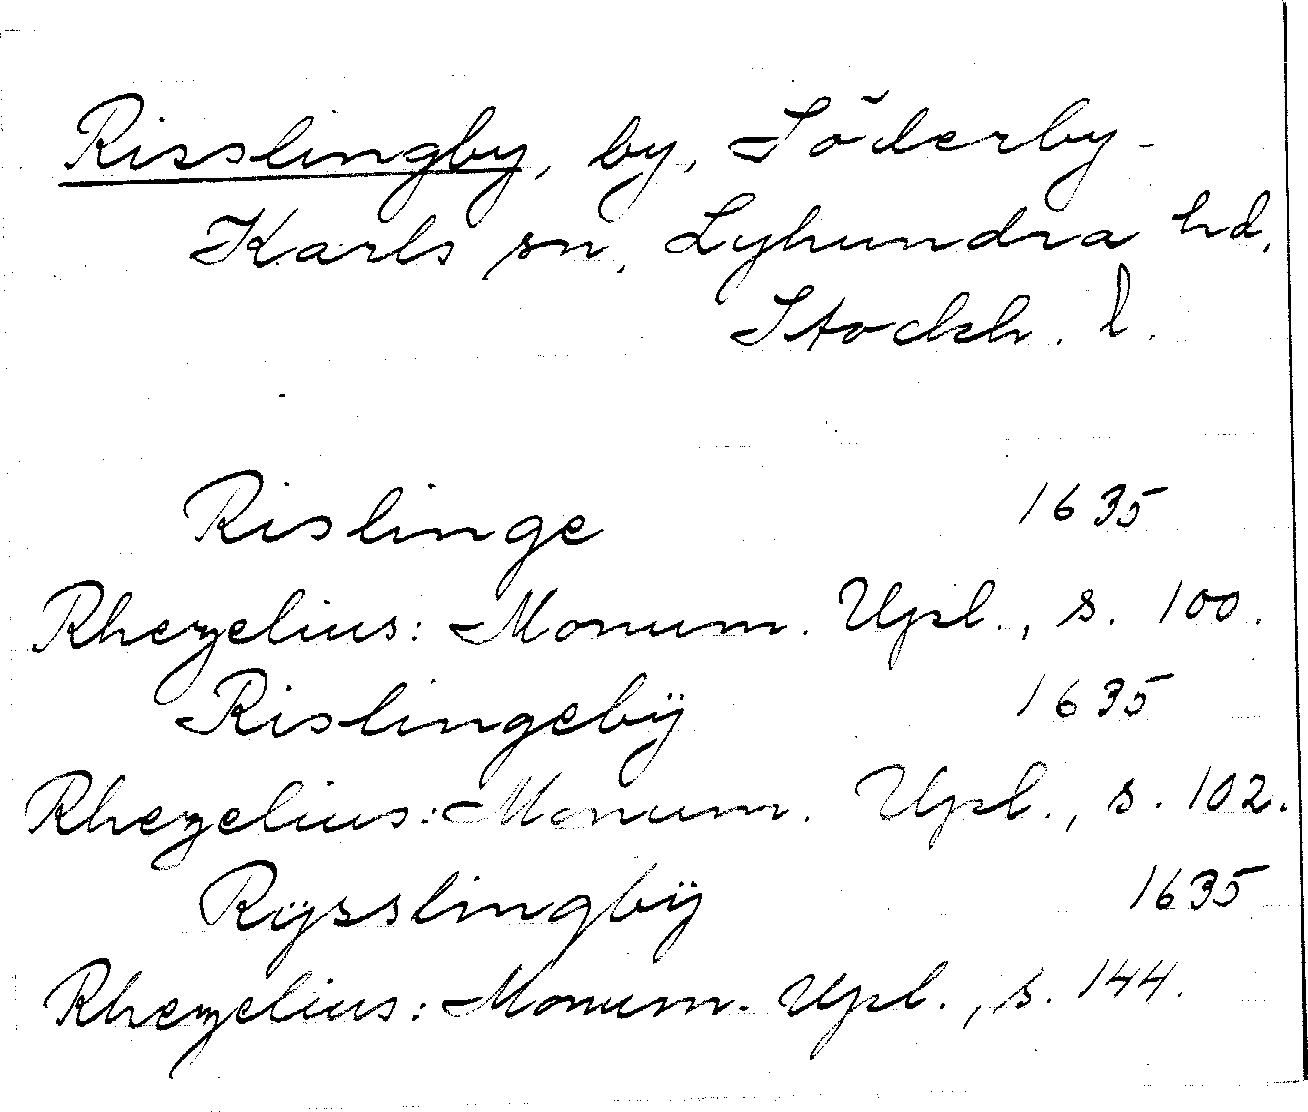 Risslingby, by, Söderby-
Karls sn, Lyhundra hd,
Stockh. l.
Rislinge 1635
Rhezelius: Monum. Upl., s. 100.
Rislingebÿ 1635
Rhezelius: Monum. Upl., s. 102.
Rÿsslingbÿ 1635
Rhezelius: Monum. Upl., s. 144.